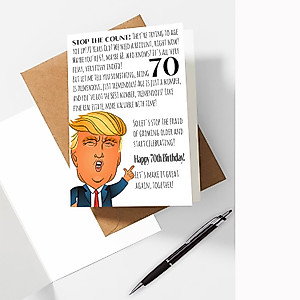 STOP THE COUNT: THEY'RE TRYING TO AGE
YOU UP! 71 YEARS OLD? WE NEED A RECOUNT, RIGHT NOW!
MAYBE YOU'RE 69, MAYBE 68, WHO KNOWS? IT'S ALL VERY
FISHY, VERY FISHY INDEED!
BUT LET ME TELL YOU SOMETHING, BEING 70
IS TREMENDOUS, JUST TREMENDOUS! AGE IS JUST A NUMBER,
AND YOU'VE GOT THE BEST NUMBER, TREMENDOUS! LIKE
FINE REAL ESTATE, MORE VALUABLE WITH TIME!
SO LET'S STOP THE FRAUD
OF GROWING OLDER AND
START CELEBRATING!
Happy 70th Birthday!
LET'S MAKE IT GREAT
AGAIN, TOGETHER!